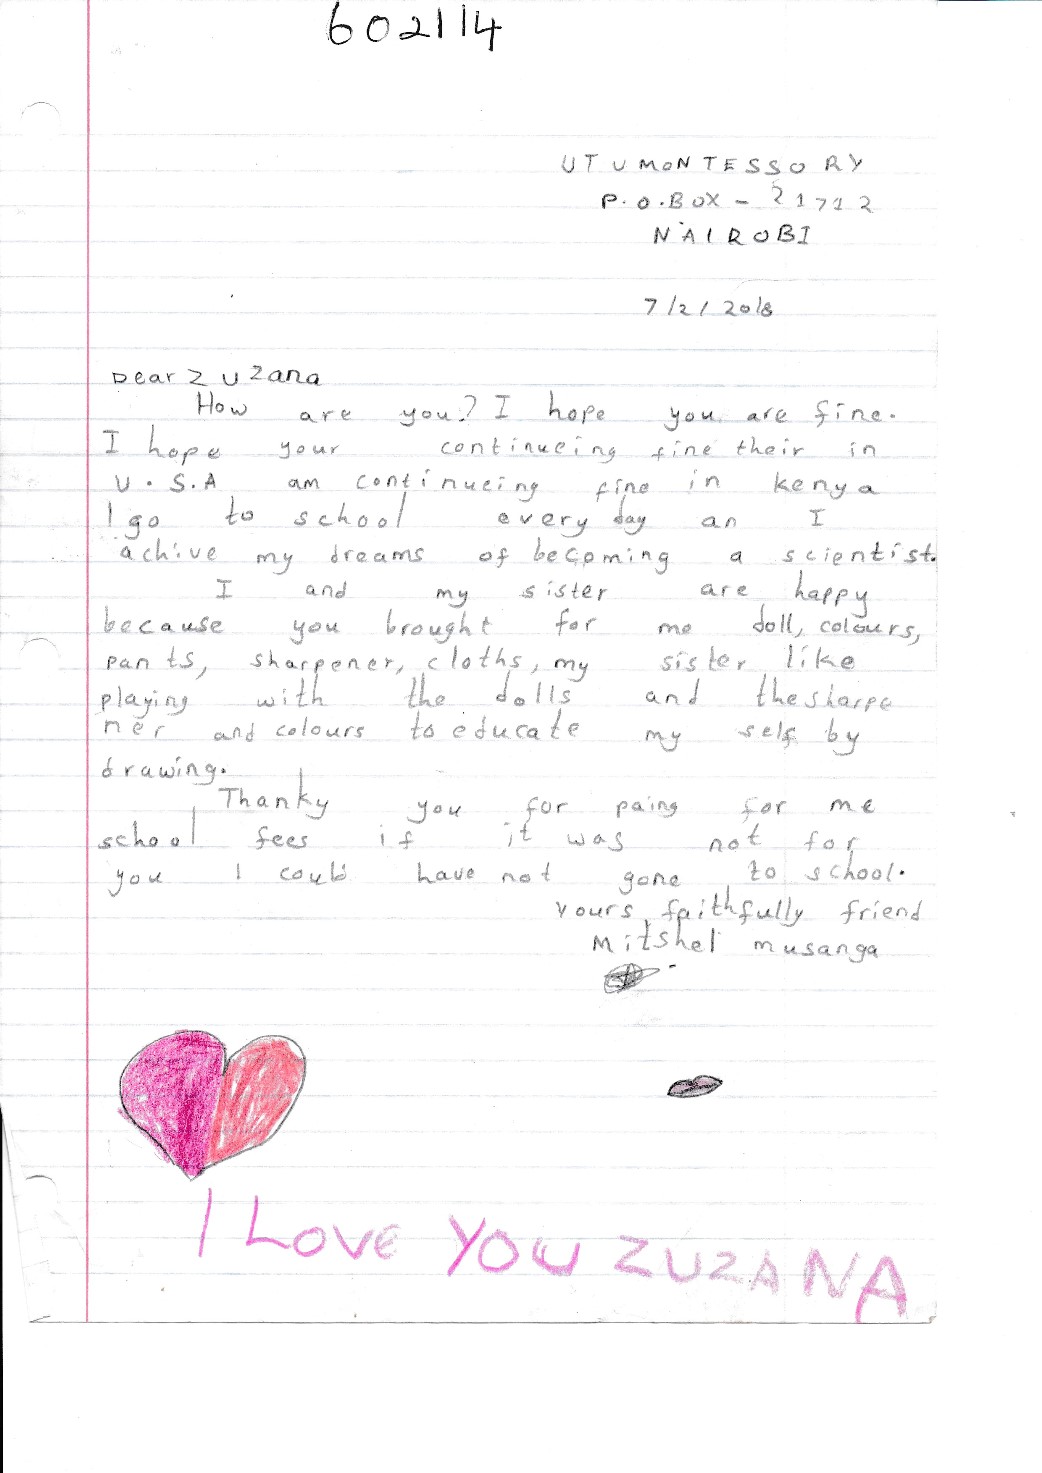 602114
UTU MONTESSORY
P.O.BOX - 21712
NAIROBI
7/2/2018
Dear Zuzana
How are you? I hope you are fine.
I hope your continueing fine their in
U.S.A am continueing fine in kenya
I go to school every day an I
achive my dreams of becoming a scientist.
I and my sister are happy
because you brought for me doll, colours,
pants, sharpener, cloths, my sister like
playing with the dolls and the sharpe
ner and colours to educate my self by
drawing.
Thanky you for paing for me
school fees if it was not for
you I could have not gone to school.
Yours faithfully friend
Mitshel musanga
I LOVE YOU ZUZANA